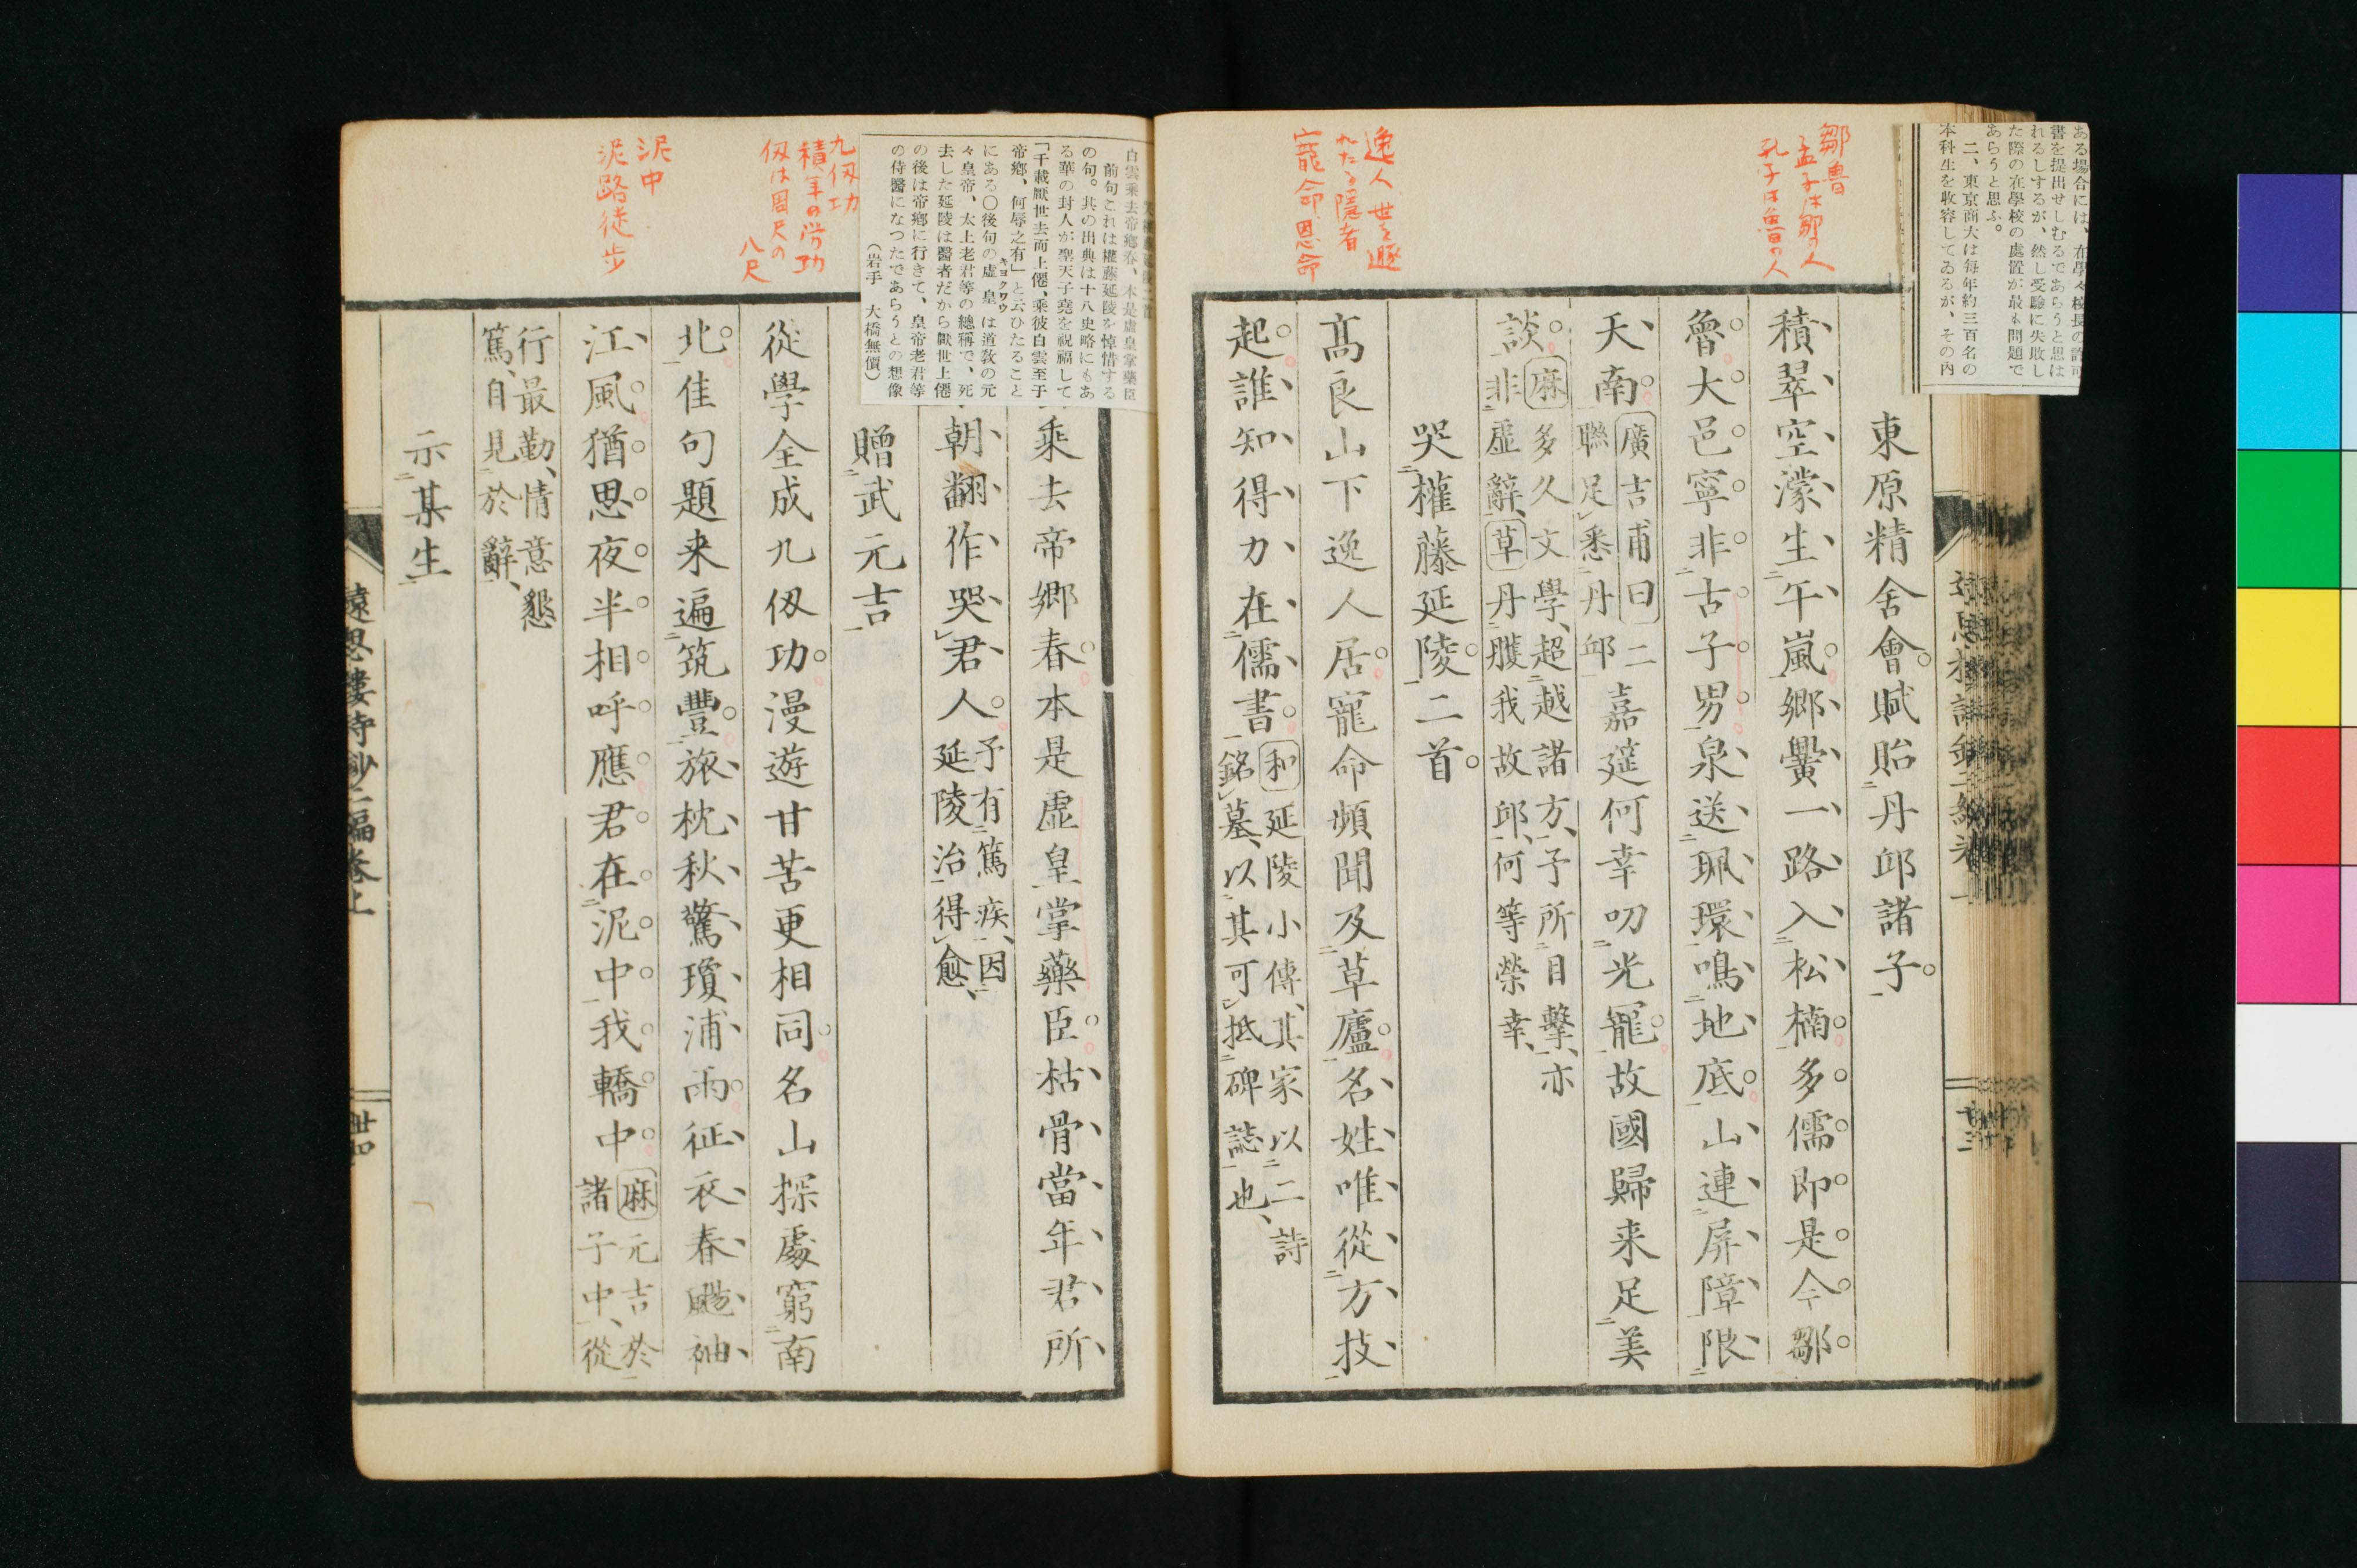 ある場合には、在學々校長の許可
書を提出せしむるであらうと思は
れるしするが、然し受驗に失敗し
た際の在學校の處置が最も問題で
あらうと思ふ。
二、東京商大は每年約三百名の
本科生を收容してゐるが、その内
鄒魯
孟子は鄒の人
孔子は魯の人
逸人 世を遯
れたる隱者
寵命 恩命
東原精舍會賦貽丹邱諸子
積翠空濛生午嵐鄉黌一路入松楠多儒即是今鄒
魯大邑寧非古子男泉送珮環鳴地底山連屏障限
天南廣吉甫曰二
聯足悉丹邱嘉筵何幸叨光寵故國歸来足美
談麻多久文學超越諸方、予所目擊、亦
非虛辭、草丹雘我故邱、何等榮幸、
哭權藤延陵二首
高良山下逸人居寵命頻聞及草廬名姓唯從方技
起誰知得力在儒書和延陵小傳、其家以二詩
銘墓、以其可抵碑誌也、
白雲乘去帝鄉春、本是虛皇掌藥臣
前句これは權藤延陵を悼惜する
の句。其の出典は十八史略にもあ
る華の封人が聖天子堯を祝福して
「千載厭世去而上僊、乘彼白雲至于
帝鄉、何辱之有」と云ひたること
にある○後句の虛皇は道敎の元
キヨクワウ
々皇帝、太上老君等の總稱で、死
去した延陵は醫者だから厭世上僊
の後は帝鄉に行きて、皇帝老君等
の侍醫になつたであらうとの想像
(岩手 大橋無價)
乘去帝鄉春本是虛皇掌藥臣枯骨當年君所
朝翻作哭君人予有篤疾、因
延陵治得愈、
九仭功
積年の労功
仭は周尺の
八尺
贈武元吉
從學全成九仭功漫遊甘苦更相同名山探處窮南
北佳句題来遍筑豐旅枕秋驚瓊浦雨征衣春颺袖
泥中
泥路徒歩
江風猶思夜半相呼應君在泥中我轎中麻元吉於
諸子中、從
行最勤、情意懇
篤、自見於辭、
示某生
遠思樓詩鈔二編卷上
卌四